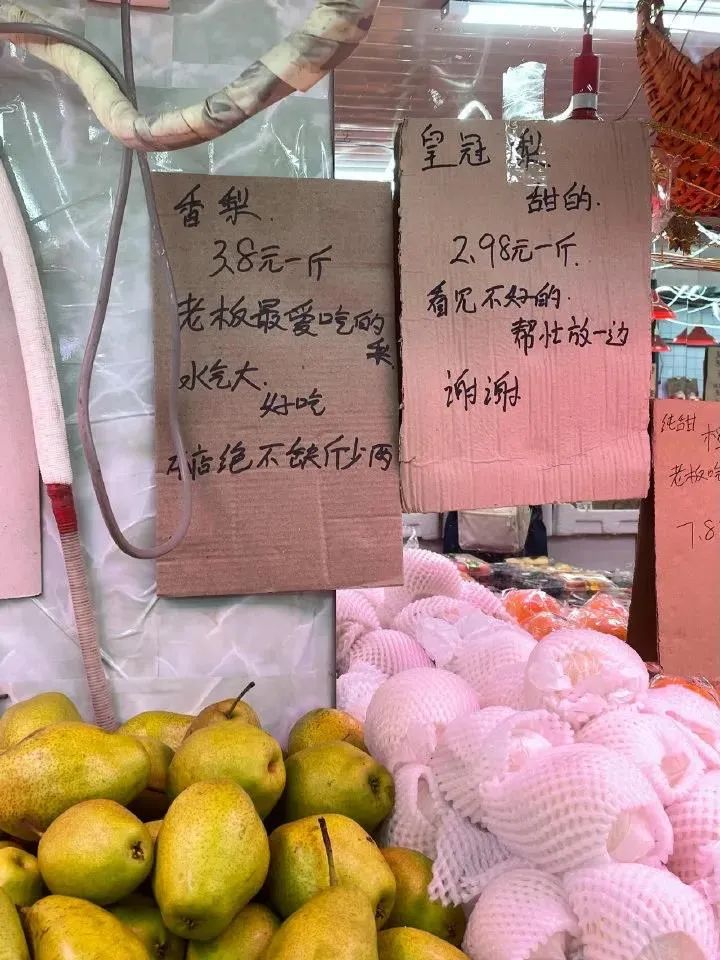 香梨.
3.8元一斤
老板最爱吃的
梨
水气大.
好吃
本店绝不缺斤少两
皇冠 梨.
甜的.
2.98元一斤.
看见不好的.
帮忙放一边
谢谢
纯甜
老板吃
7.8